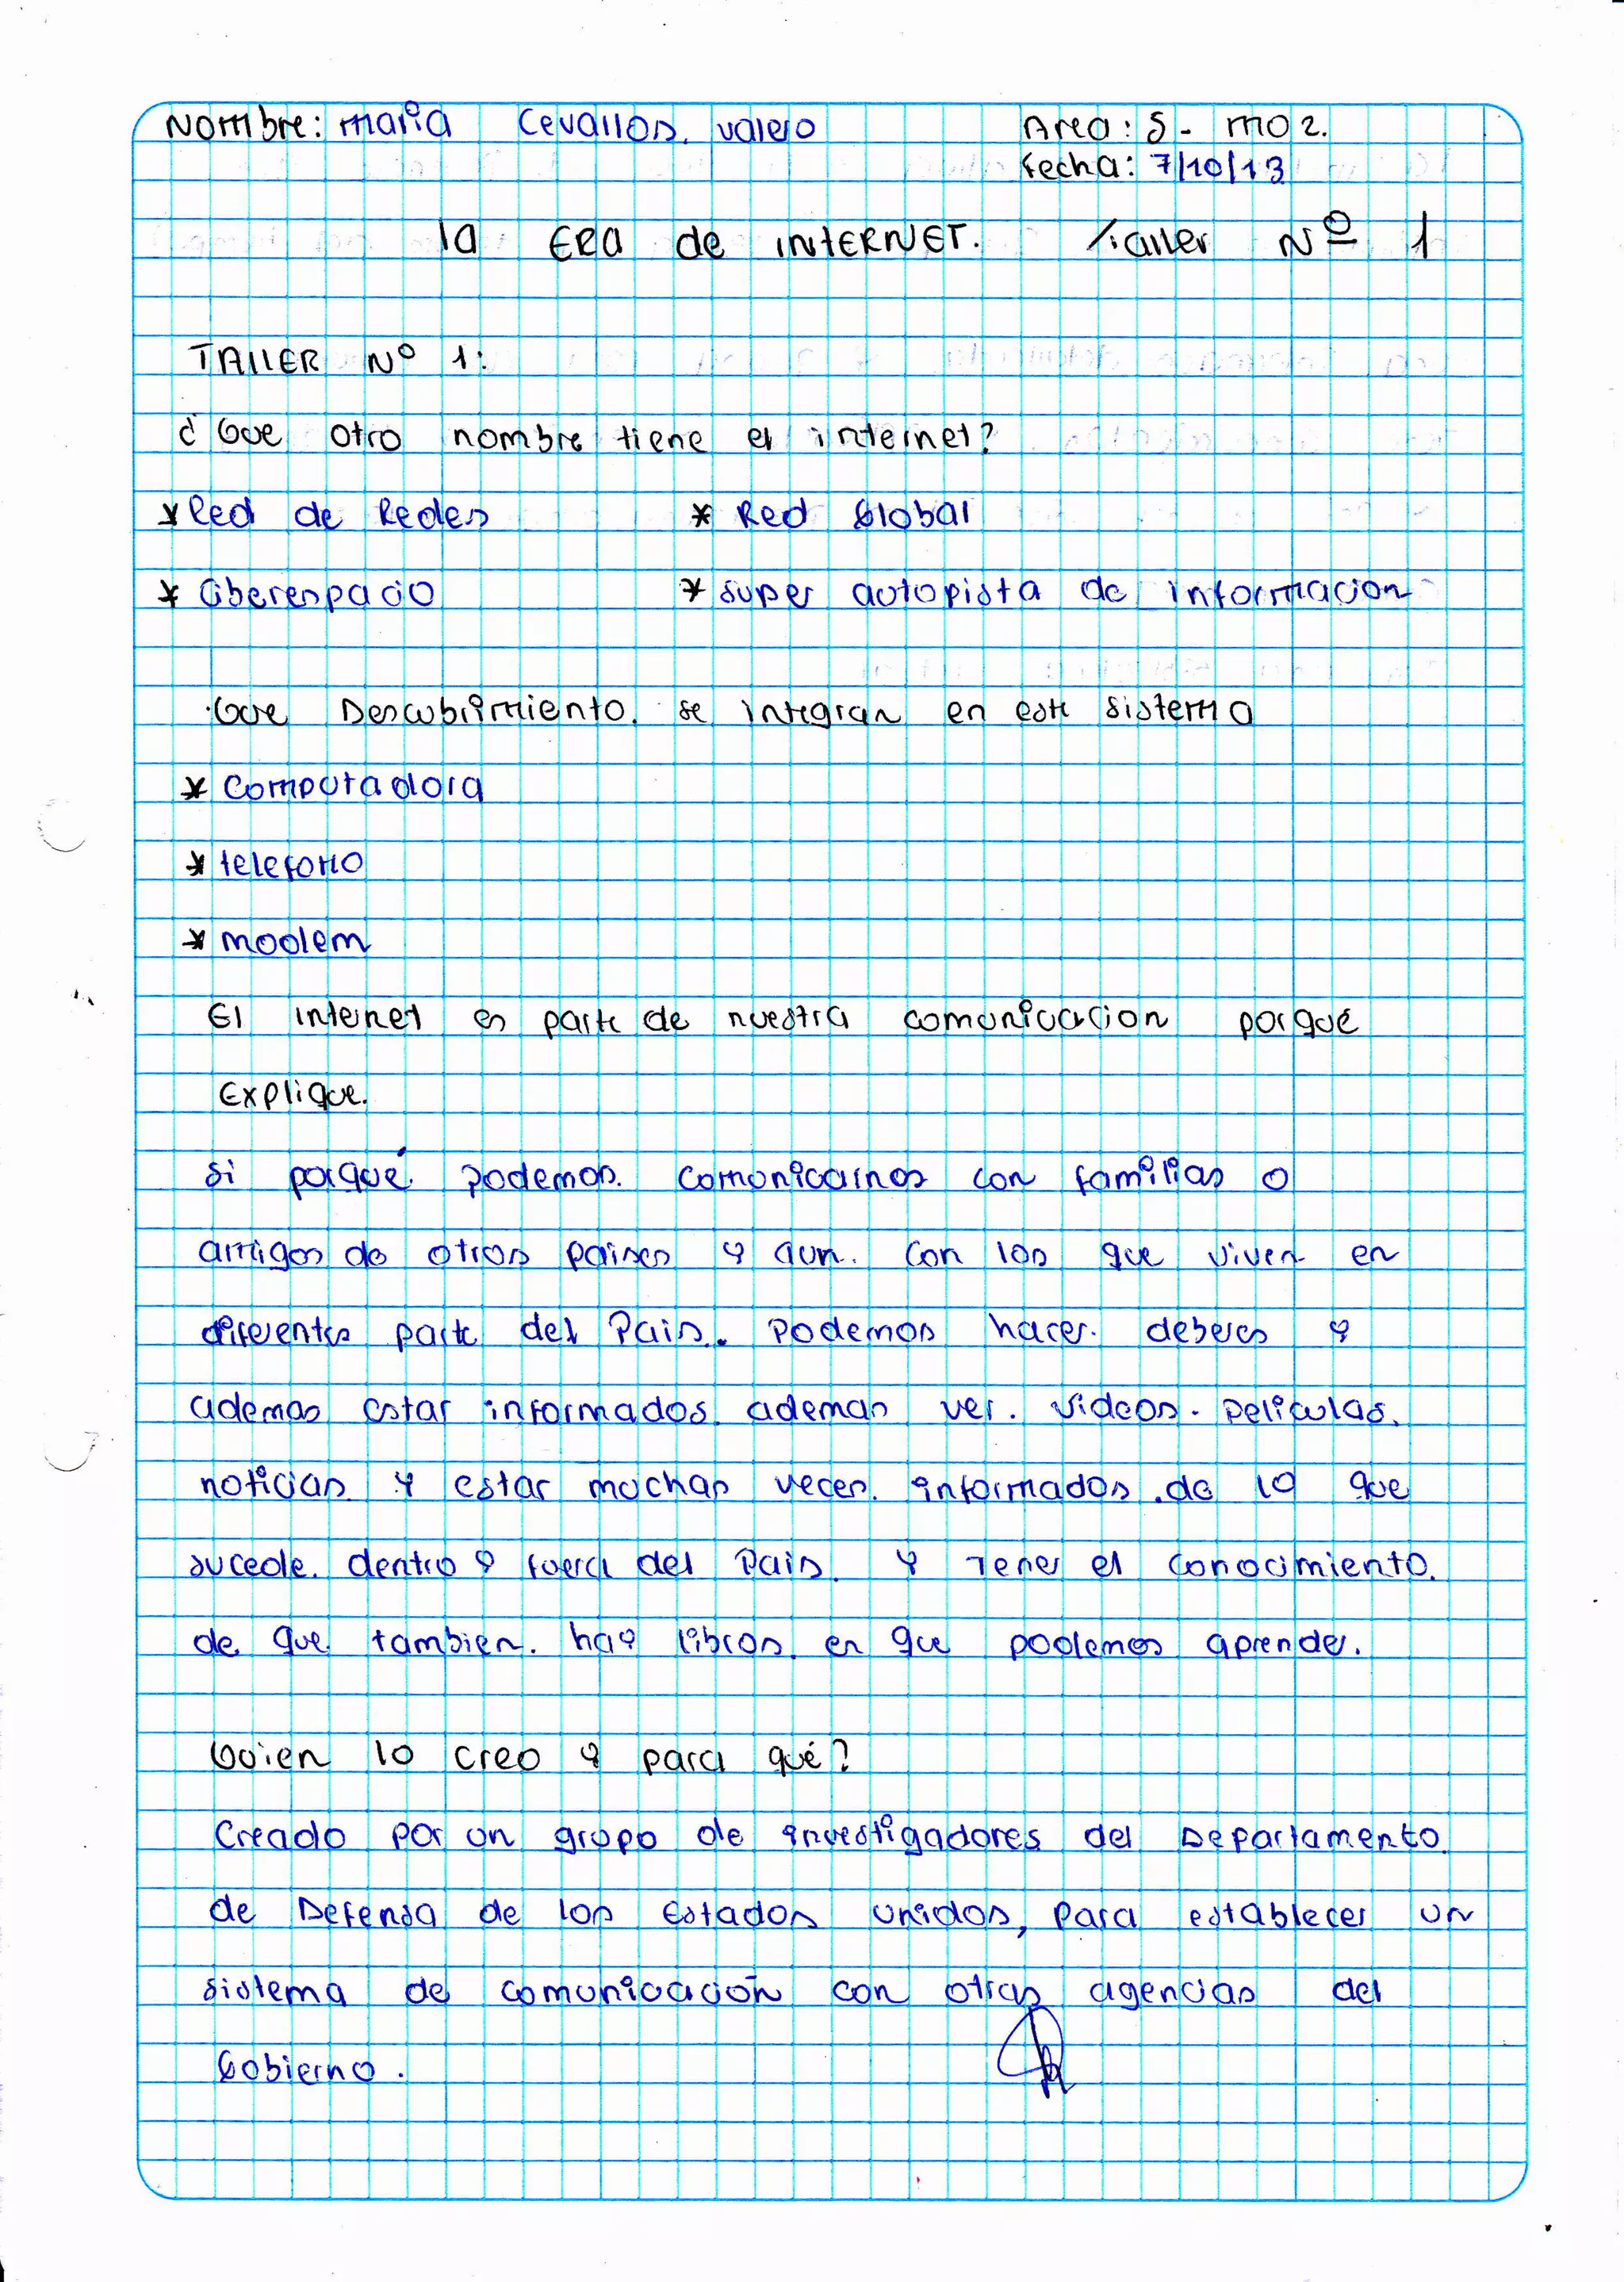 Nombre: maria Cevallos. valejo Area: S- mo2.
fecha: 7/10/13
la ERA de INTERNET. Taller Nº 1
TALLER Nº 1:
¿ Que otro nombre tiene el internet?
* Red de Redes * Red Global
* Ciberespacio * super autopista de informacion
Que Descubrimiento. se integran en este sistema
* Computadora
* telefono
* modem
El internet es parte de nuestra comunicacion porqué
Explique.
si porqué podemos. comunicarnos con familias o
amigos de otros paises y aun. con los que viven en
diferentes parte del Pais. Podemos hacer. deberes y
ademas estar informados. ademas ver. videos. peliculas.
noticias. y estar muchas veces. informados. de lo que
sucede. dentro y fuera del Pais. y Tener el conocimiento.
de que tambien. hay libros. en que podemos aprender.
Quien lo creo y para qué?
Creado por un grupo de investigadores del Departamento.
de Defensa de los Estados unidos, para establecer un
sistema de comunicación con otras agencias del
Gobierno.